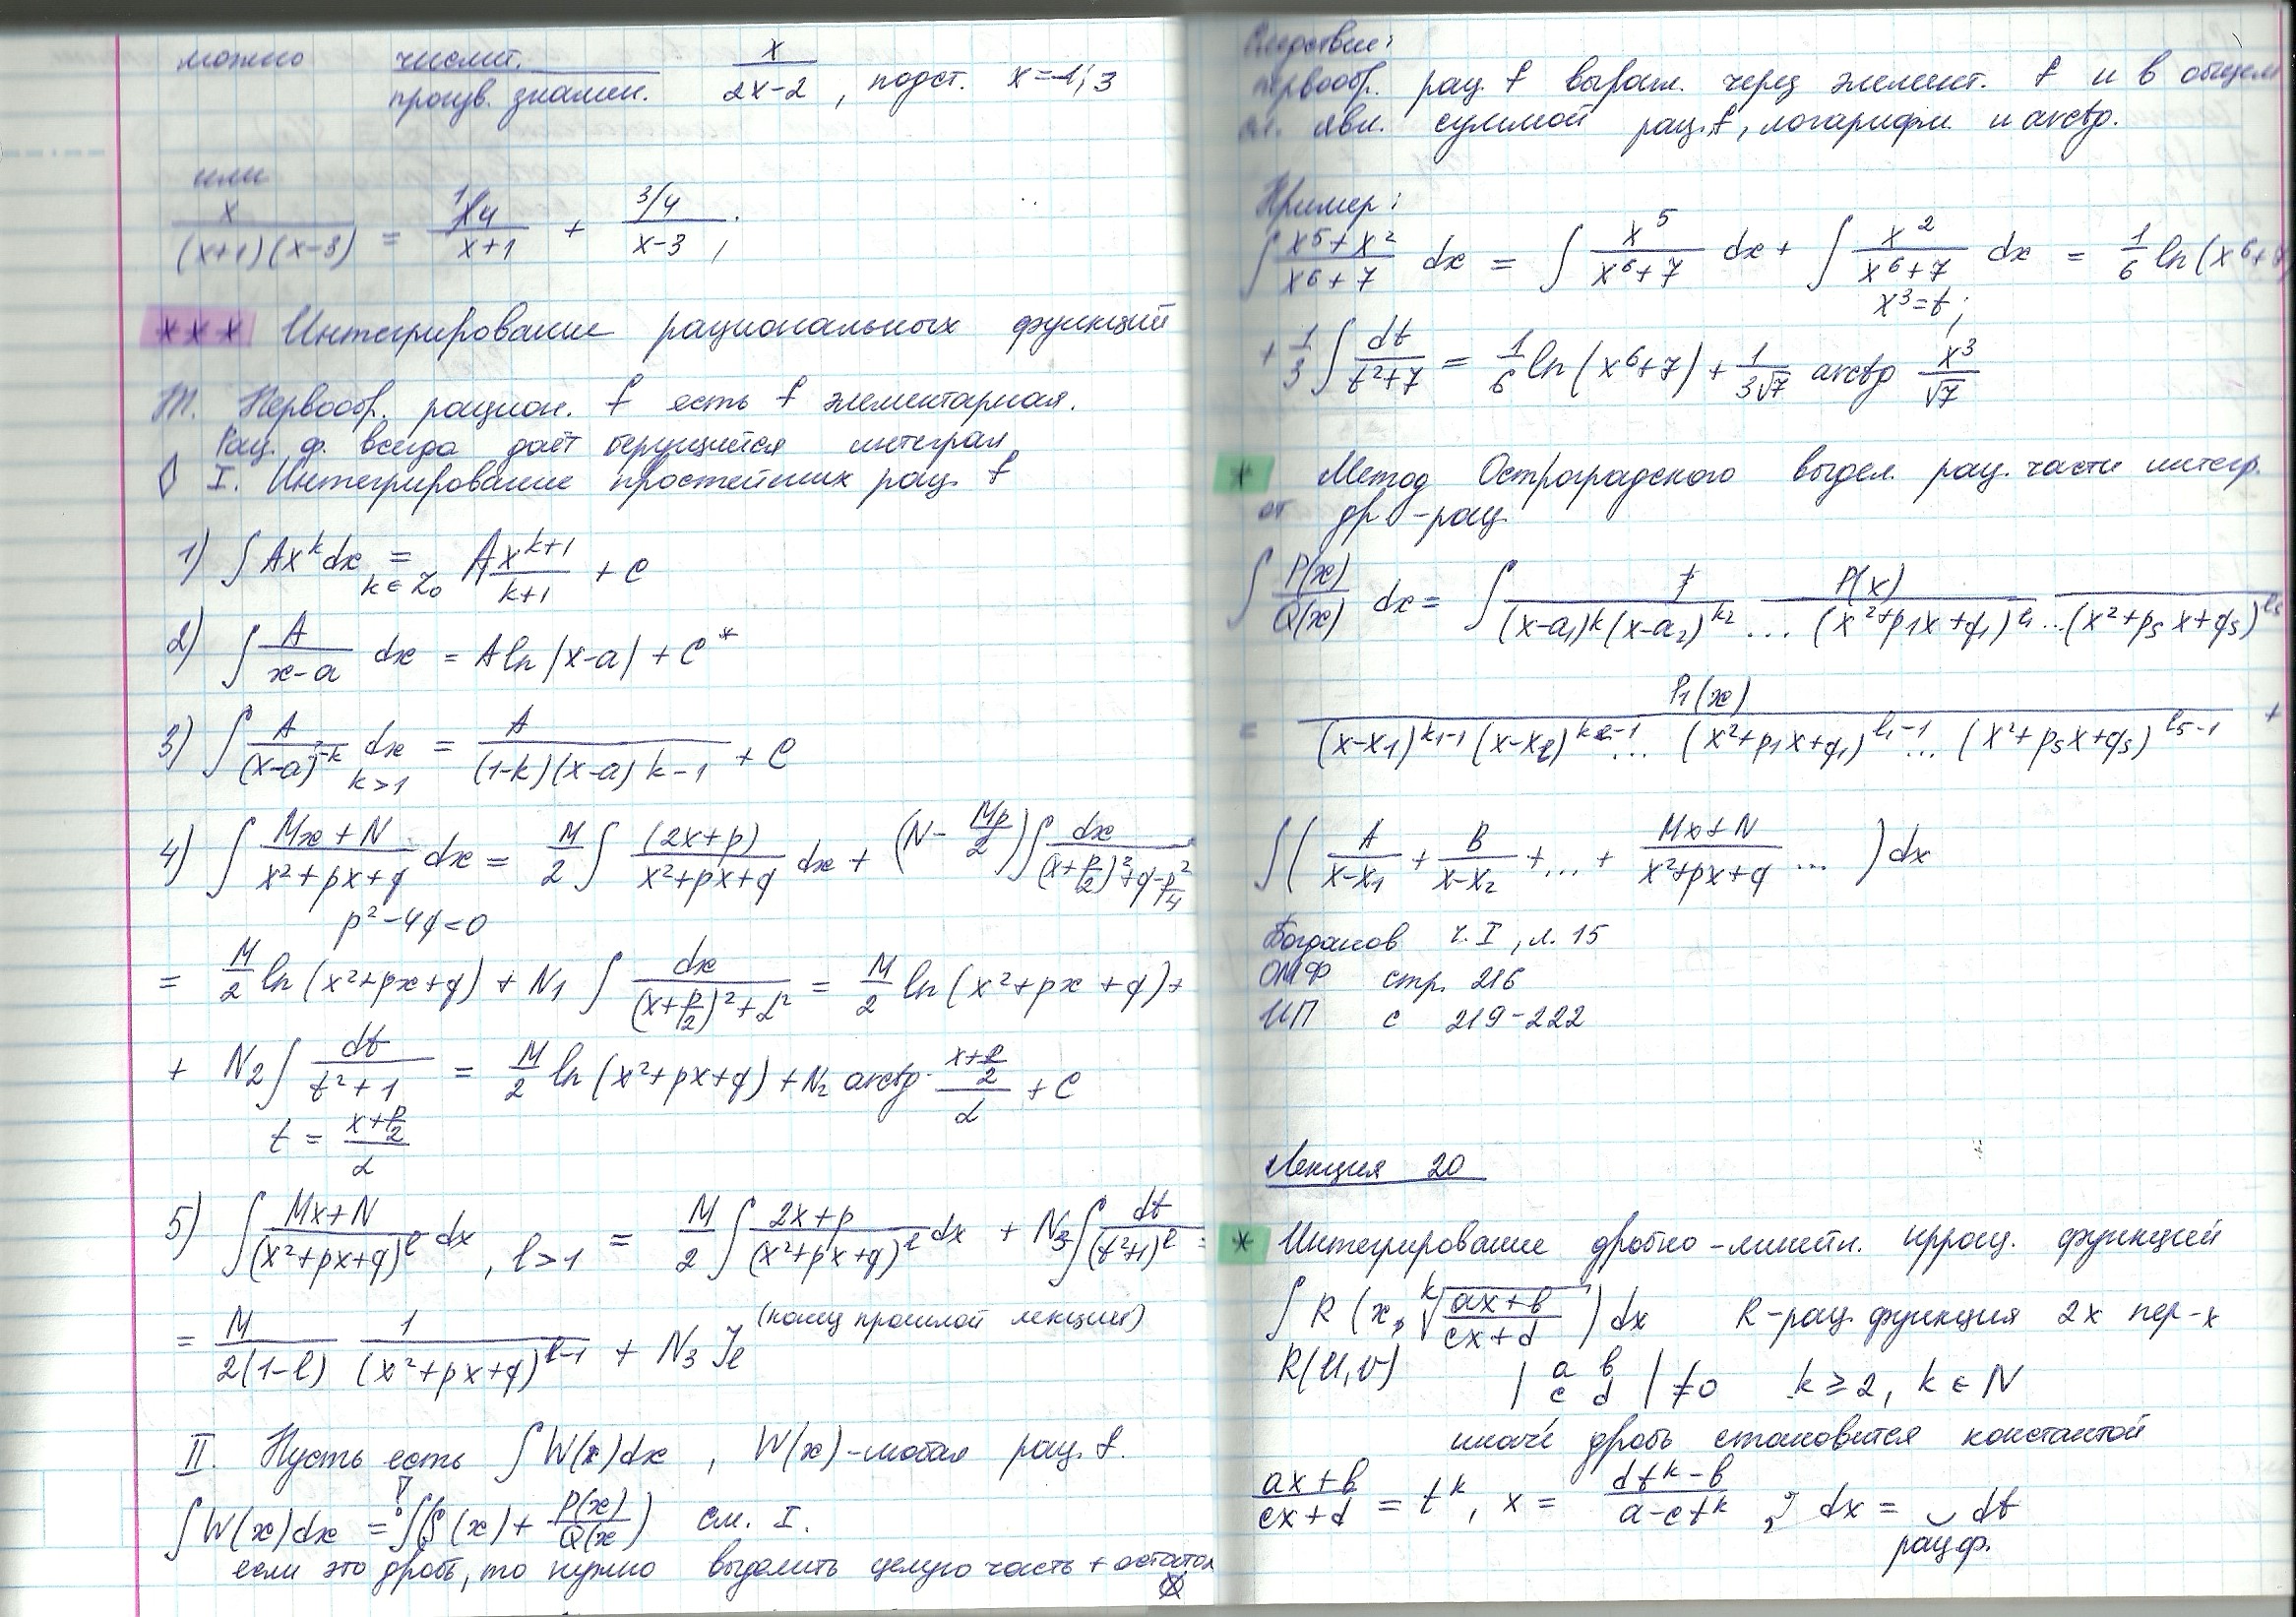 можно числит. / произв. знамен. x/(2x-2), подст. x=-1; 3
или
x/((x+1)(x-3)) = (1/4)/(x+1) + (3/4)/(x-3);
*** Интегрирование рациональных функций
Т. Первообр. рацион. f есть f элементарная.
Рац. ф. всегда даёт берущийся интеграл
I. Интегрирование простейших рац. f
1) ∫Ax^k dx = Ax^(k+1)/(k+1) + C
k∈Z₀
2) ∫ A/(x-a) dx = A ln|x-a| + C*
3) ∫ A/(x-a)^k dx = A/((1-k)(x-a)k-1) + C
k>1
4) ∫ (Mx+N)/(x²+px+q) dx = M/2 ∫ (2x+p)/(x²+px+q) dx + (N - Mp/2) ∫ dx/((x+p/2)²+q-p²/4)
p²-4q<0
= M/2 ln(x²+px+q) + N₁ ∫ dx/((x+p/2)²+α²) = M/2 ln(x²+px+q) +
+ N₂ ∫ dt/(t²+1) = M/2 ln(x²+px+q) + N₂ arctg (x+p/2)/α + C
t = (x+p/2)/α
5) ∫ (Mx+N)/(x²+px+q)^l dx, l>1 = M/2 ∫ (2x+p)/(x²+px+q)^l dx + N₃ ∫ dt/(t²+1)^l =
= M/(2(1-l)) 1/(x²+px+q)^(l-1) + N₃ J_l (конец прошлой лекции)
II. Пусть есть ∫W(x)dx, W(x)-любая рац. f.
∫W(x)dx = ∫(S(x) + P(x)/Q(x)) см. I.
если это дробь, то нужно выделить целую часть + остаток
Следствие:
первообр. рац. f выраж. через элемент. f и в общем
сл. явл. суммой рац. f, логарифм. и arctg.
Пример:
∫ (x⁵+x²)/(x⁶+7) dx = ∫ x⁵/(x⁶+7) dx + ∫ x²/(x⁶+7) dx = 1/6 ln(x⁶+7)
x³=t;
+ 1/3 ∫ dt/(t²+7) = 1/6 ln(x⁶+7) + 1/(3√7) arctg x³/√7
* Метод Остроградского выдел. рац. части интегр.
от др-рац.
∫ P(x)/Q(x) dx = ∫ P(x)/((x-a₁)^k (x-a₂)^k₂ ... (x²+p₁x+q₁)^l₁ ... (x²+p_s x+q_s)^l_s)
= P₁(x)/((x-x₁)^(k₁-1) (x-x₂)^(k₂-1) ... (x²+p₁x+q₁)^(l₁-1) ... (x²+p_s x+q_s)^(l_s-1)) +
∫( A/(x-x₁) + B/(x-x₂) + ... + (Mx+N)/(x²+px+q) ... ) dx
Богданов ч. I, л. 15
ОМФ стр. 216
ИП с 219-222
Лекция 20
* Интегрирование дробно-линейн. иррац. функций
∫ R(x, ᵏ√((ax+b)/(cx+d))) dx R-рац. функция 2х пер-х
R(u,v) |a b; c d| ≠0 k≥2, k∈N
иначе дробь становится константой
(ax+b)/(cx+d) = t^k, x = (dt^k-b)/(a-ct^k), dx = ‿ dt
рац ф.